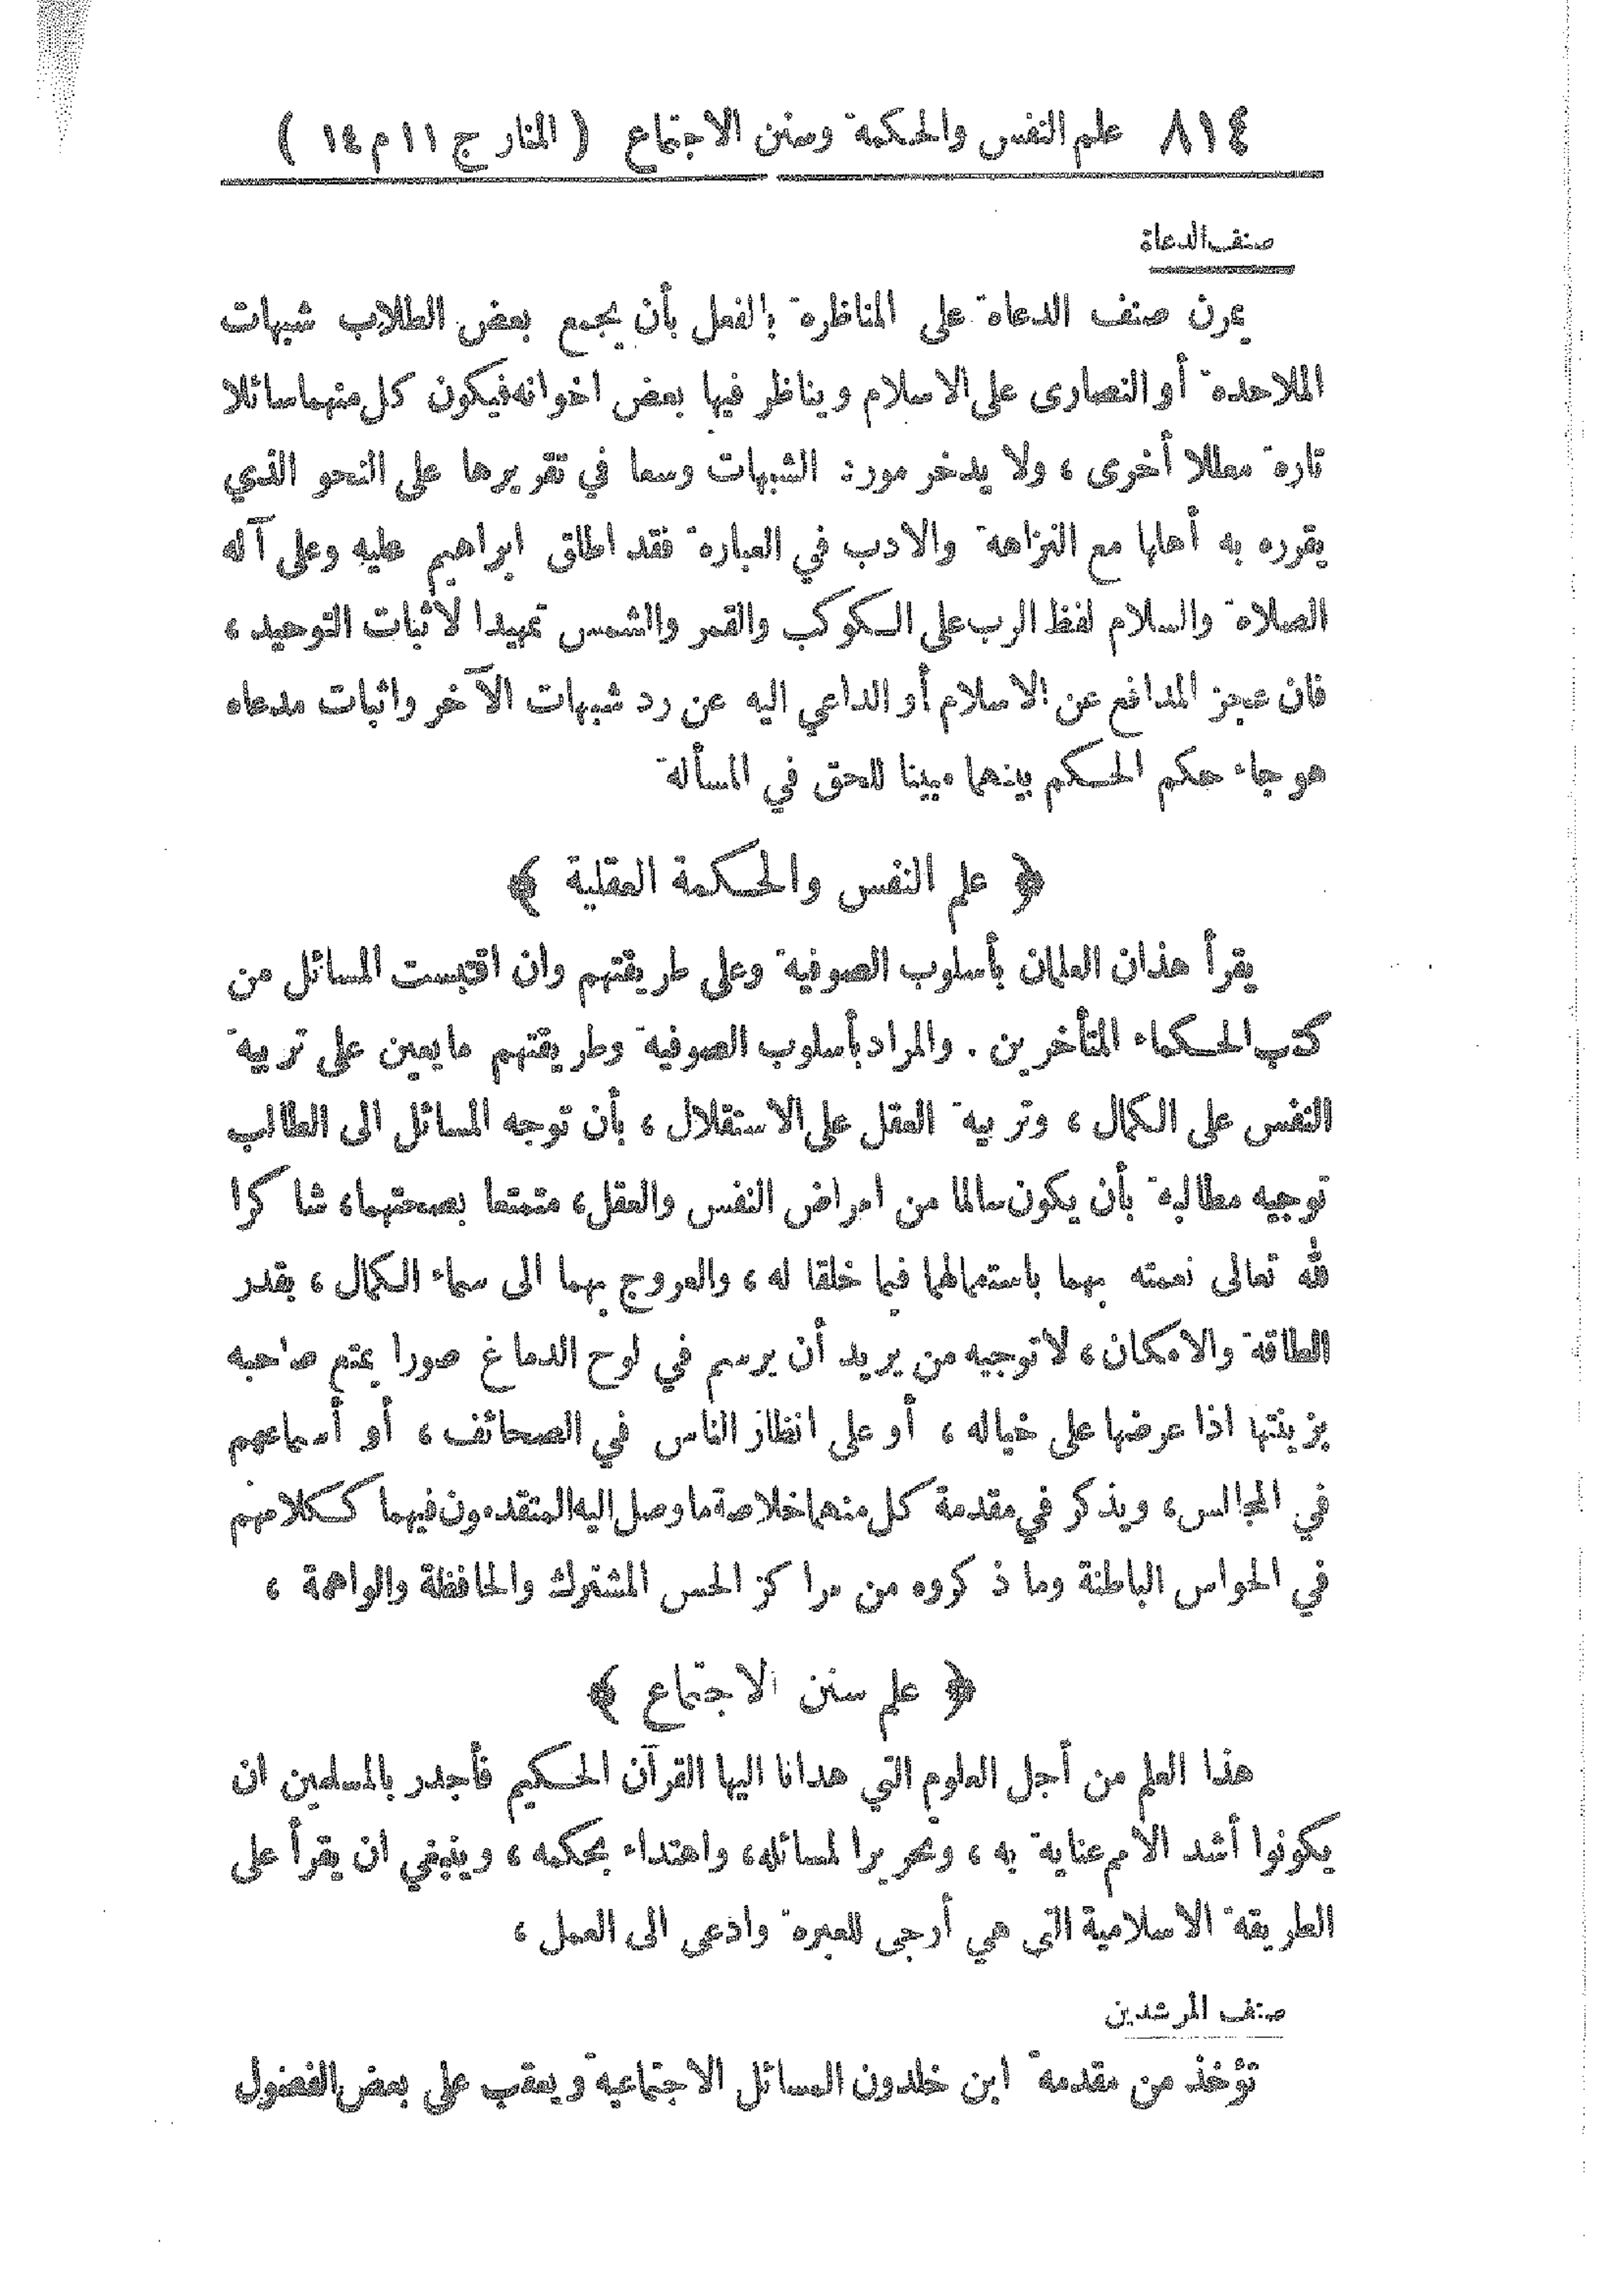 ٨١٤ علم النفس والحكمة وسنن الاجتماع ( المنار ج ١١ م ١٤ )
صنف الدعاة
يمرن صنف الدعاة على المناظرة بالفعل بأن يجمع بعض الطلاب شبهات
الملاحدة أو النصارى على الاسلام ويناظر فيها بعض اخوانه فيكون كل منهما سائلا
تارة معللا أخرى ، ولا يدخر مورد الشبهات وسعا في تقريرها على النحو الذي
يقرره به أهلها مع النزاهة والادب في العبارة فقد اطلق ابراهيم عليه وعلى آله
الصلاة والسلام لفظ الرب على الكوكب والقمر والشمس تمهيدا لاثبات التوحيد ،
فان عجز المدافع عن الاسلام أو الداعي اليه عن رد شبهات الآخر واثبات مدعاه
هو جاء حكم الحكم بينهما مبينا للحق في المسألة
﴿ علم النفس والحكمة العقلية ﴾
يقرأ هذان العلمان بأسلوب الصوفية وعلى طريقتهم وان اقتبست المسائل من
كتب الحكماء المتأخرين . والمراد بأسلوب الصوفية وطريقتهم ما يعين على تربية
النفس على الكمال ، وتربية العقل على الاستقلال ، بأن توجه المسائل الى الطالب
توجيه مطالبة بأن يكون سالما من امراض النفس والعقل، متمتعا بصحتهما، شاكرا
لله تعالى نعمته بهما باستعمالهما فيما خلقا له ، والعروج بهما الى سماء الكمال ، بقدر
الطاقة والامكان ، لا توجيه من يريد أن يرسم في لوح الدماغ صورا يمتع صاحبه
بزينتها اذا عرضها على خياله ، أو على انظار الناس في الصحائف ، أو أسماعهم
في المجالس ، ويذكر في مقدمة كل منهما خلاصة ما وصل اليه المتقدمون فيهما ككلامهم
في الحواس الباطنة وما ذكروه من مراكز الحس المشترك والحافظة والواهمة ،
﴿ علم سنن الاجتماع ﴾
هذا العلم من أجل العلوم التي هدانا اليها القرآن الحكيم فأجدر بالمسلمين ان
يكونوا أشد الأمم عناية به ، وتحريرا لمسائله، واهتداء بحكمه ، وينبغي ان يقرأ على
الطريقة الاسلامية التي هي أرجى للعبرة وادعى الى العمل ،
صنف المرشدين
تؤخذ من مقدمة ابن خلدون المسائل الاجتماعية ويعقب على بعض الفصول